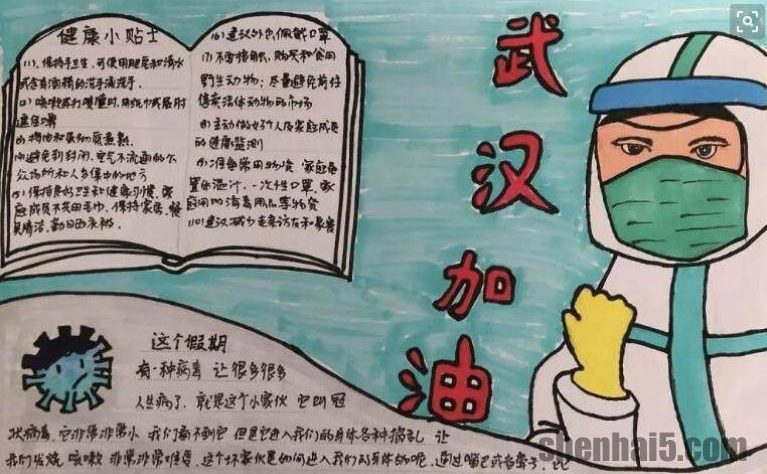 健康小贴士
(1)、保持手卫生，可使用肥皂和清水
或含有酒精的洗手液洗手.
(2) 咳嗽或打喷嚏时，用纸巾或屈肘
遮住口鼻
(3) 将肉和蛋彻底煮熟.
(4) 避免到封闭，空气不流通的公
众场所和人多集中的地方
(5) 保持良好卫生和健康习惯，家
庭成员不共用毛巾，保持家居、餐
具清洁，勤日晒衣被.
(6) 建议外出佩戴口罩
(7) 不要接触、购买和食用
野生动物；尽量避免前往
售卖活体动物的市场
(8) 主动做好个人及家庭成员
的健康监测
(9) 准备常用物资 家庭备
置体温计、一次性口罩，家
庭用的消毒用品等物资
(10) 建议减少走亲访友和聚餐
武汉加油
这个假期
有一种病毒 让很多很多
人生病了，就是这个小家伙 它叫冠
状病毒，它非常非常小 我们看不到它 但是它进入我们的身体各种捣乱 让
我们发烧 咳嗽 非常非常难受，这个坏家伙是如何进入我们的身体的呢，通过嘴巴或者鼻子，比
shenhai5.com